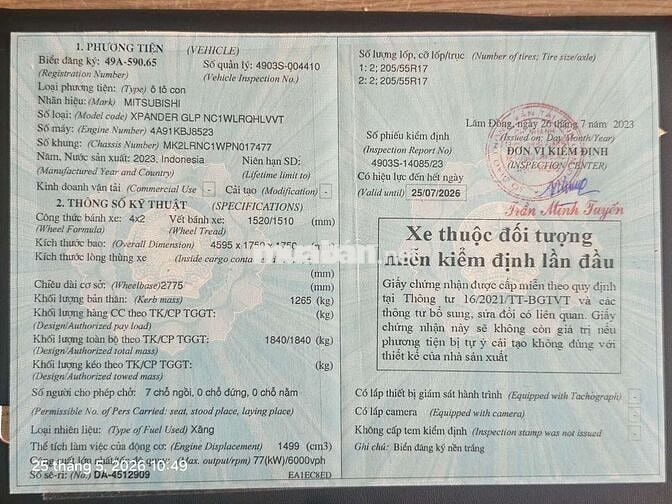 1. PHƯƠNG TIỆN (VEHICLE)
Biển đăng ký: 49A-590.65 Số quản lý: 4903S-004410
(Registration Number) (Vehicle Inspection No.)
Loại phương tiện: (Type) ô tô con
Nhãn hiệu: (Mark) MITSUBISHI
Số loại: (Model code) XPANDER GLP NC1WLRQHLVVT
Số máy: (Engine Number) 4A91KBJ8523
Số khung: (Chassis Number) MK2LRNC1WPN017477
Năm, Nước sản xuất: 2023, Indonesia Niên hạn SD:
(Manufactured Year and Country) (Lifetime limit to)
Kinh doanh vận tải (Commercial Use) - Cải tạo (Modification) -
2. THÔNG SỐ KỸ THUẬT (SPECIFICATIONS)
Công thức bánh xe: 4x2 Vết bánh xe: 1520/1510 (mm)
(Wheel Formula) (Wheel Tread)
Kích thước bao: (Overall Dimension) 4595 x 1750 x 1750 (mm)
Kích thước lòng thùng xe (Inside cargo
(mm)
Chiều dài cơ sở: (Wheelbase) 2775 (mm)
Khối lượng bản thân: (Kerb mass) 1265 (kg)
Khối lượng hàng CC theo TK/CP TGGT: (kg)
(Design/Authorized pay load)
Khối lượng toàn bộ theo TK/CP TGGT: 1840/1840 (kg)
(Design/Authorized total mass)
Khối lượng kéo theo TK/CP TGGT: (kg)
(Design/Authorized towed mass)
Số người cho phép chở: 7 chỗ ngồi, 0 chỗ đứng, 0 chỗ nằm
(Permissible No. of Pers Carried: seat, stood place, laying place)
Loại nhiên liệu: (Type of Fuel Used) Xăng
Thể tích làm việc của động cơ: (Engine Displacement) 1499 (cm3)
(Max. output/rpm) 77(kW)/6000vph
Số sê-ri: (No.) DA-4512909 EA1EC8ED
25 thang 5, 2026 10:49
Số lượng lốp, cỡ lốp/trục (Number of tires; Tire size/axle)
1: 2; 205/55R17
2: 2; 205/55R17
Lâm Đồng, ngày 26 tháng 7 năm 2023
(Issued on: Day/Month/Year)
Số phiếu kiểm định ĐƠN VỊ KIỂM ĐỊNH
(Inspection Report No) (INSPECTION CENTER)
4903S-14085/23
Có hiệu lực đến hết ngày
(Valid until) 25/07/2026
Trần Minh Tuyến
Xe thuộc đối tượng
miễn kiểm định lần đầu
Giấy chứng nhận được cấp miễn theo quy định
tại Thông tư 16/2021/TT-BGTVT và các
thông tư bổ sung, sửa đổi có liên quan. Giấy
chứng nhận này sẽ không còn giá trị nếu
phương tiện bị tự ý cải tạo không đúng với
thiết kế của nhà sản xuất
Có lắp thiết bị giám sát hành trình (Equipped with Tachograph) -
Có lắp camera (Equipped with camera) -
Không cấp tem kiểm định (Inspection stamp was not issued) -
Ghi chú: Biển đăng ký nền trắng